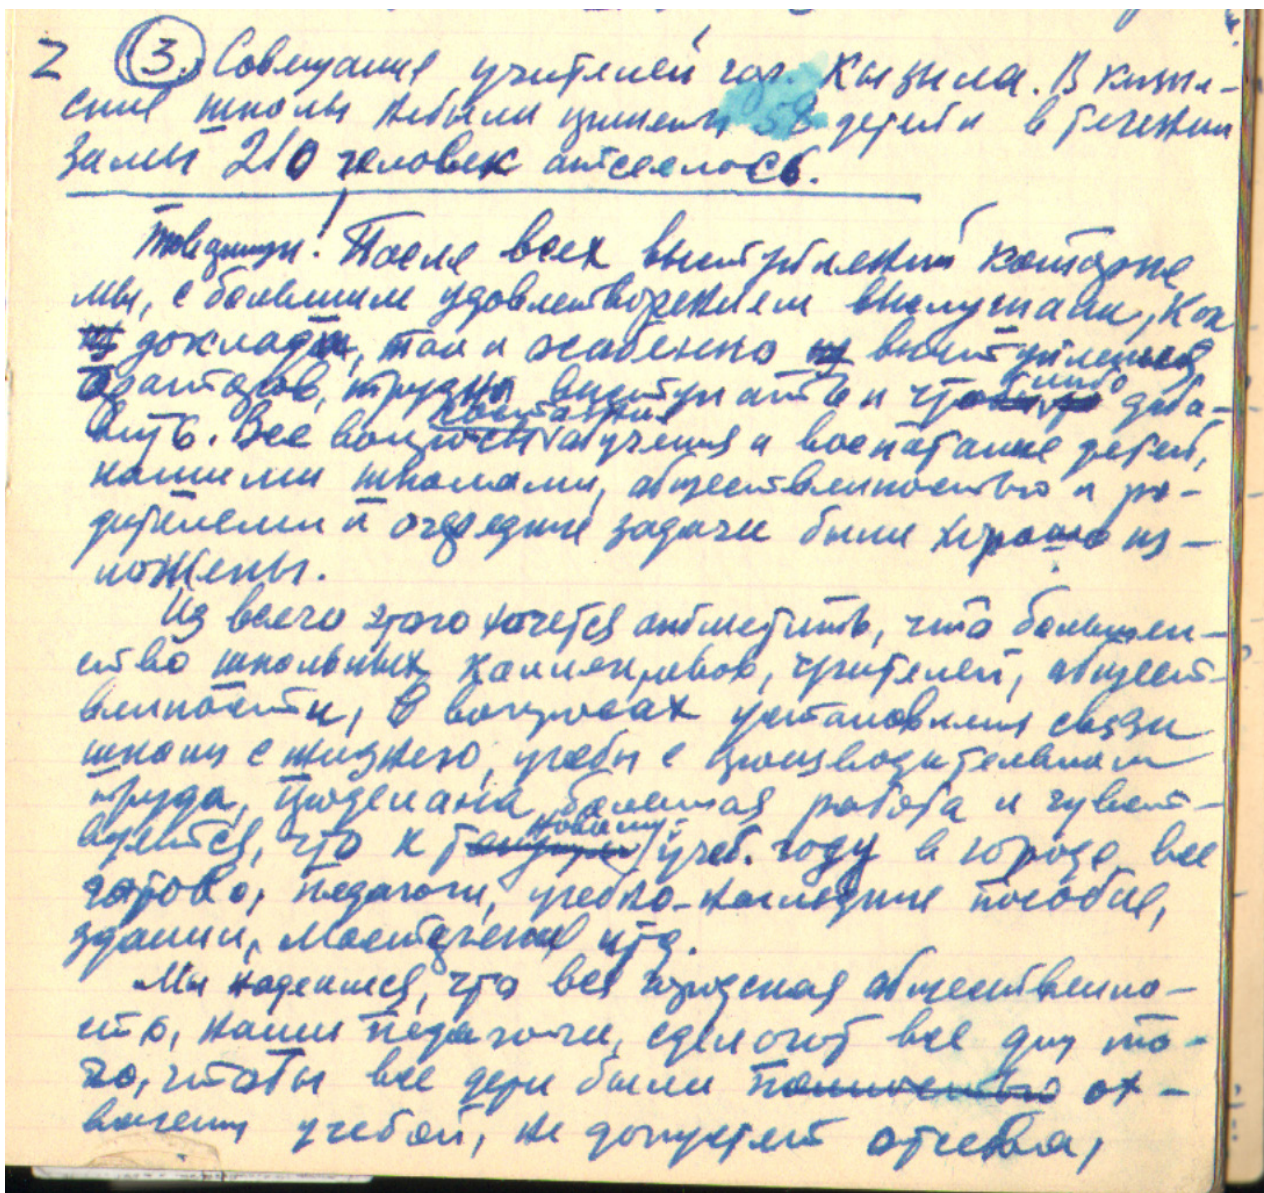 2 (3.) Совещание учителей гор. Кызыла. В кызыл-
ские школы небыли приняты 58 детей и в течении
зимы 210 человек отсеялось.
Товарищи! После всех выступлений которые
мы, с большим удовлетворением выслушали, как
доклады, так и особенно выступления
ораторов, трудно выступать и что либо доба-
вить. Все вопросы постановки обучения и воспитание детей,
нашими школами, общественностью и ро-
дителеми и очередные задачи были хорошо из-
ложены.
Из всего этого хочется отметить, что большин-
ство школьных коллективов, учителей, общест-
венности, в вопросах установления связи
школы с жизнею, учебы с производительным
трудом, проделана большая работа и чувст-
вуется, что к новому учеб. году в городе все
готово, педагоги, учебно-наглядные пособие,
здании, мастерские итд.
Мы надеимся, что вся городская общественно-
сть, наши педагоги, сделают все для то-
го, чтобы все дети были полностью ох-
вачены учебой, не допустят отсева,